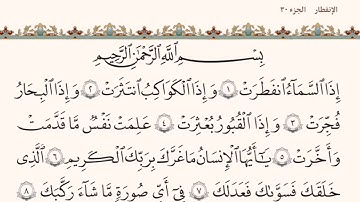 الإنفطار الجزء ٣٠
بِسْمِ ٱللَّهِ ٱلرَّحْمَٰنِ ٱلرَّحِيمِ
إِذَا ٱلسَّمَآءُ ٱنفَطَرَتْ ١ وَإِذَا ٱلْكَوَاكِبُ ٱنتَثَرَتْ ٢ وَإِذَا ٱلْبِحَارُ
فُجِّرَتْ ٣ وَإِذَا ٱلْقُبُورُ بُعْثِرَتْ ٤ عَلِمَتْ نَفْسٌ مَّا قَدَّمَتْ
وَأَخَّرَتْ ٥ يَٰٓأَيُّهَا ٱلْإِنسَٰنُ مَا غَرَّكَ بِرَبِّكَ ٱلْكَرِيمِ ٦ ٱلَّذِى
خَلَقَكَ فَسَوَّىٰكَ فَعَدَلَكَ ٧ فِىٓ أَىِّ صُورَةٍ مَّا شَآءَ رَكَّبَكَ ٨